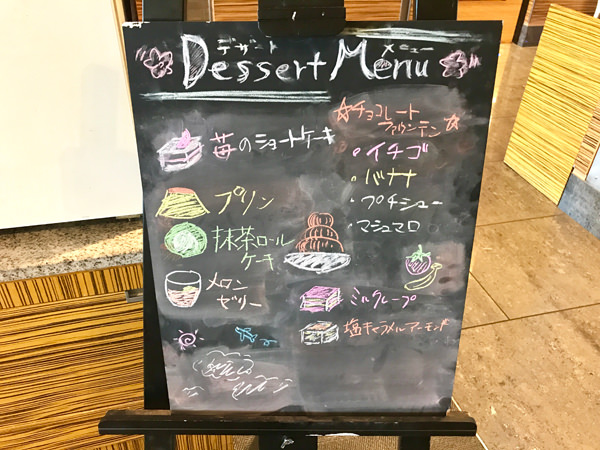 デザート メニュー
Dessert Menu
苺のショートケーキ
プリン
抹茶ロール
ケーキ
メロン
ゼリー
☆チョコレート
ファウンテン☆
・イチゴ
・バナナ
・プチシュー
・マシュマロ
ミルクレープ
塩キャラメルアーモンド